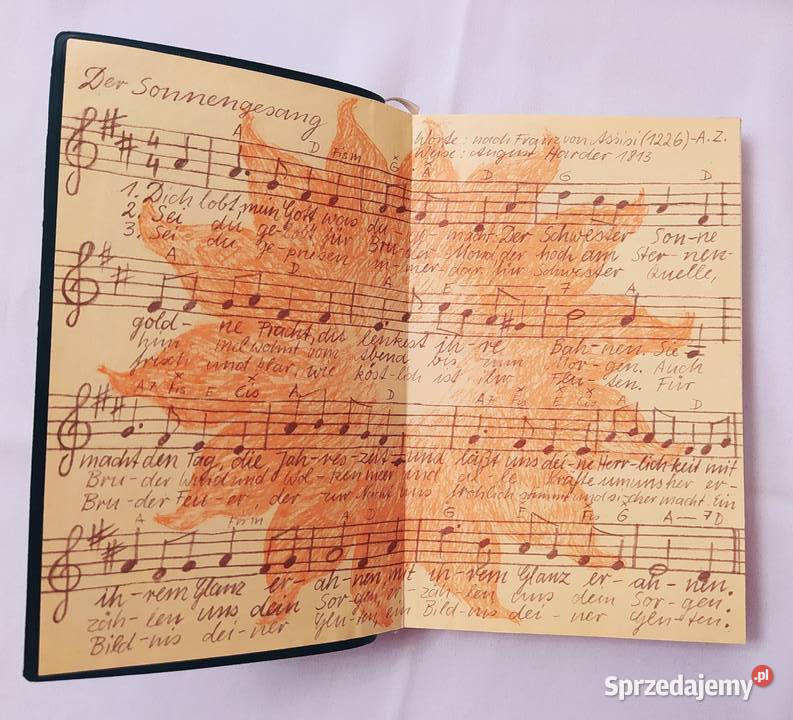 Der Sonnengesang
Worte: nach Franz von Assisi (1226)-A.Z.
Weise: August Harder 1813
A D Fism A D G A D
1. Dich lobt mein Gott was du macht. Der Schwester Son-ne
2. Sei du ge-lobt für Bru-der Mond, der hoch am Ster-nen-
3. Sei du ge priesen im-mer-dar, für Schwester Quelle,
A D A E — 7 A
gold-ne Pracht, du lenkest ih-re Bah-nen. Sie
hin und wohnt vom Abend bis zum Mor-gen. Auch
frisch und klar, wie köst-lich ist ihr Flu-ten. Für
A7 Fis E Cis A D A7 Fis E Cis A D
macht den Tag, die Jah-res-zeit und läßt uns dei-ne Herr-lich keit mit
Bru-der Wind und Wol-ken und al-le kräfte um uns her er-
Bru-der Feu-er, der zur Nacht uns fröhlich stimmt und sicher macht. Ein
A Fism A D G E Fis G A — 7 D
ih-rem Glanz er-ah-nen, mit ih-rem Glanz er-ah-nen.
zäh-len uns dein Sorgen, er-zäh-len uns dein Sor-gen.
Bild-nis dei-ner Glu-ten, ein Bild-nis dei-ner Glu-ten.
Sprzedajemy.pl